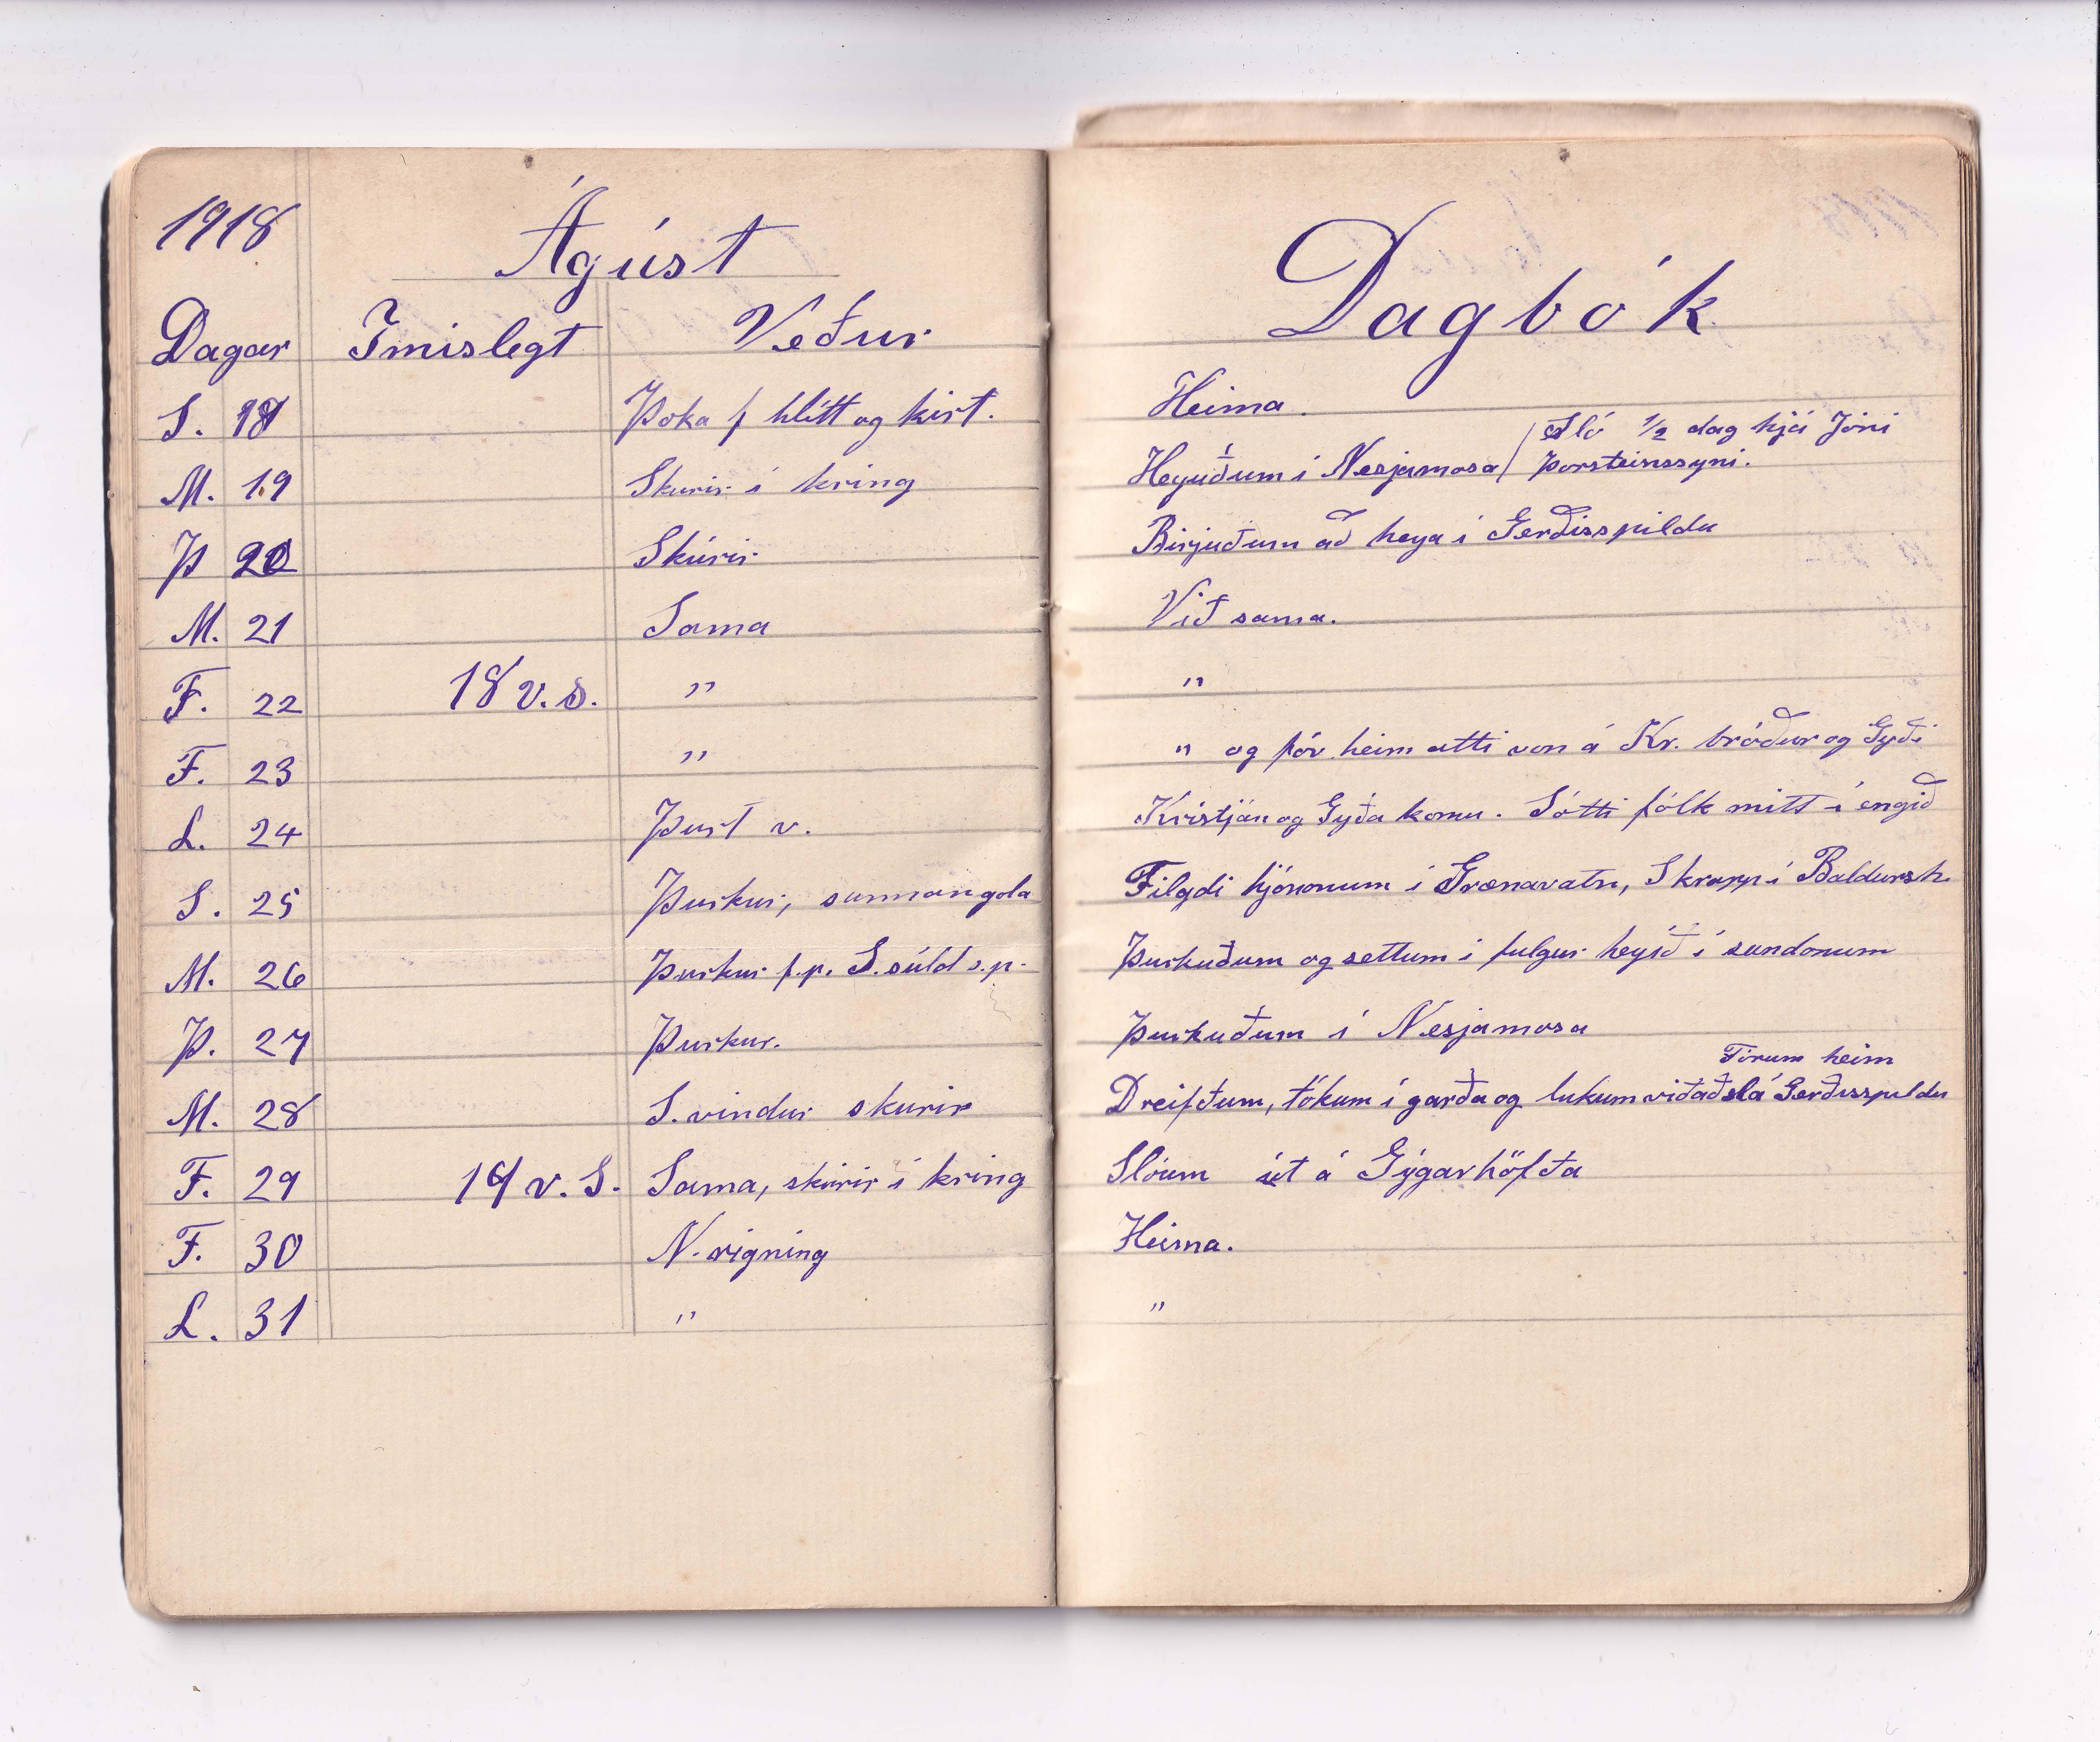 1918 Ágúst
Dagar Imislegt Veður
S. 18 Þoka f hlítt og kirt.
M. 19 Skurir í kring
Þ 20 Skúrir
M. 21 Sama
F. 22 18 v.s. "
F. 23 "
L. 24 Þust v.
S. 25 Þurkur, sunnangola
M. 26 Þurkur f.p. S.súld s.p.
Þ. 27 Þurkur.
M. 28 S. vindur skurir
F. 29 19 v. S. Sama, skúrir í kring
F. 30 N. rigning
L. 31 "
Dagbók
Heima.
Sló 1/2 dag hjá Jóni
Heyuðum í Nesjamosa / Þorsteinssyni.
Birjuðum að heya í Gerðisspildu
Við sama.
"
" og fór heim atti von á Kr. bróður og Gyði
Kristján og Gyða komu. Sótti fólk mitt í engið
Filgdi hjónonum í Grænavatn, Skrapp í Baldursh.
Þurkuðum og settum í fulgur heyið í sundonum
Þurkuðum í Nesjamosa
Fórum heim
Dreifðum, tókum í garða og lukum við að slá Gerðisspildu
Slóum út á Gýgarhöfða
Heima.
"